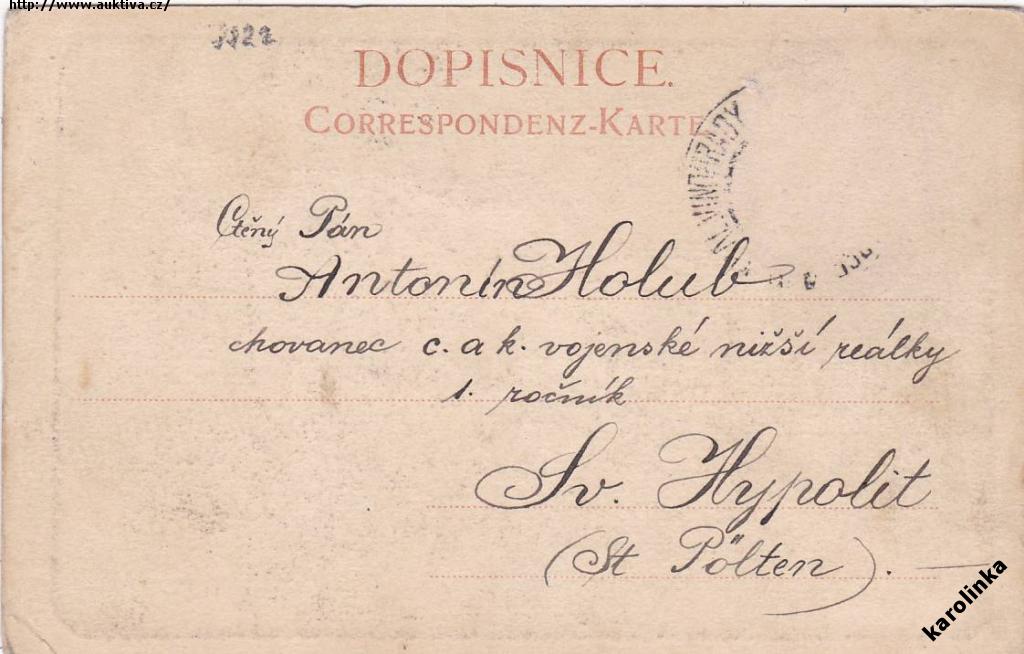 http://www.auktiva.cz/
DOPISNICE.
CORRESPONDENZ-KARTE
Ctěný Pán
Antonín Holub
chovanec c. a k. vojenské nižší reálky
1. ročník
Sv. Hypolit
(St Pölten).
karolinka